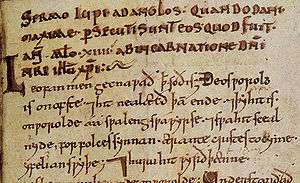 SERMO LUPI AD ANGLOS QUANDO DANI
MAXIME P̄SECUTI SUNT EOS QUOD FUIT
XIIII. AB INCARNATIONE DN̄I
NR̄I IHŪ XP̄I
Leofan men gecnawað ꝥ soð is. Ðeos worold
is on ofste ⁊ hit nealæcð þā ende. ⁊ þy hit is
on worolde aa swa leng swa wyrse. ⁊ swa hit sceal
nyde for folces synnan ær antecristes tocyme
yfelian swyþe. ⁊ huru hit wyrð þænne
worolde. Understandað